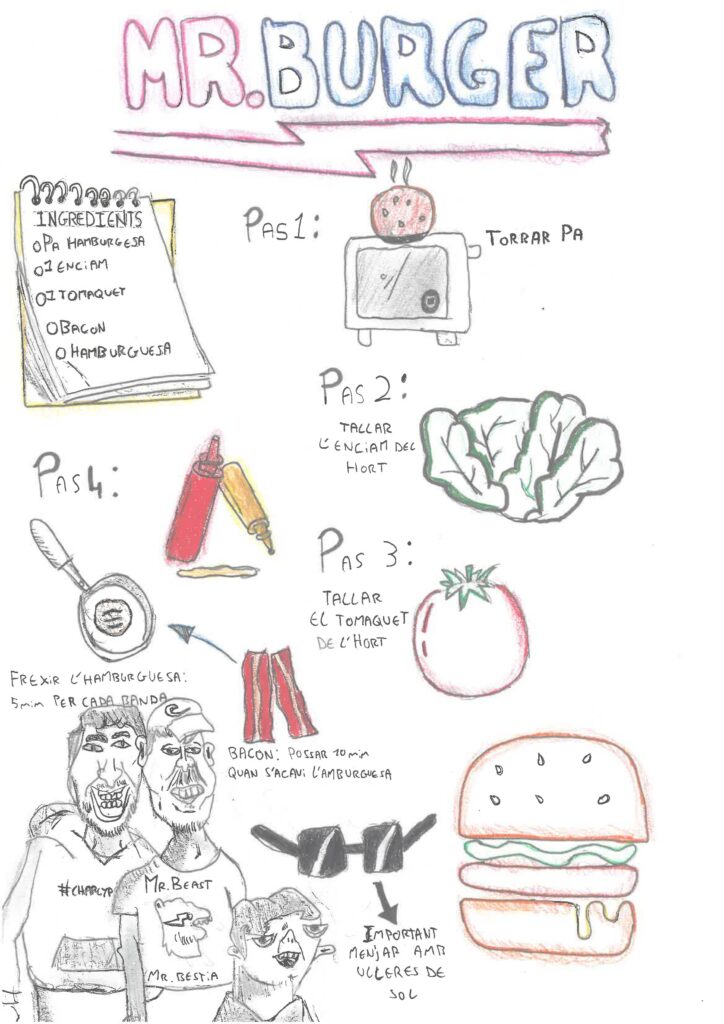 MR. BURGER
INGREDIENTS
PA HAMBURGESA
1 ENCIAM
1 TOMAQUET
BACON
HAMBURGUESA
PAS 1:
TORRAR PA
PAS 2:
TALLAR
L'ENCIAM DEL
HORT
PAS 3:
TALLAR
EL TOMAQUET
DE L'HORT
PAS 4:
FREXIR L'HAMBURGUESA:
5min PER CADA BANDA
BACON: POSSAR 10 min
QUAN S'ACAVI L'AMBURGUESA
#CHARLYP
MR. BEAST
MR. BESTIA
IMPORTANT
MENJAR AMB
ULLERES DE
SOL